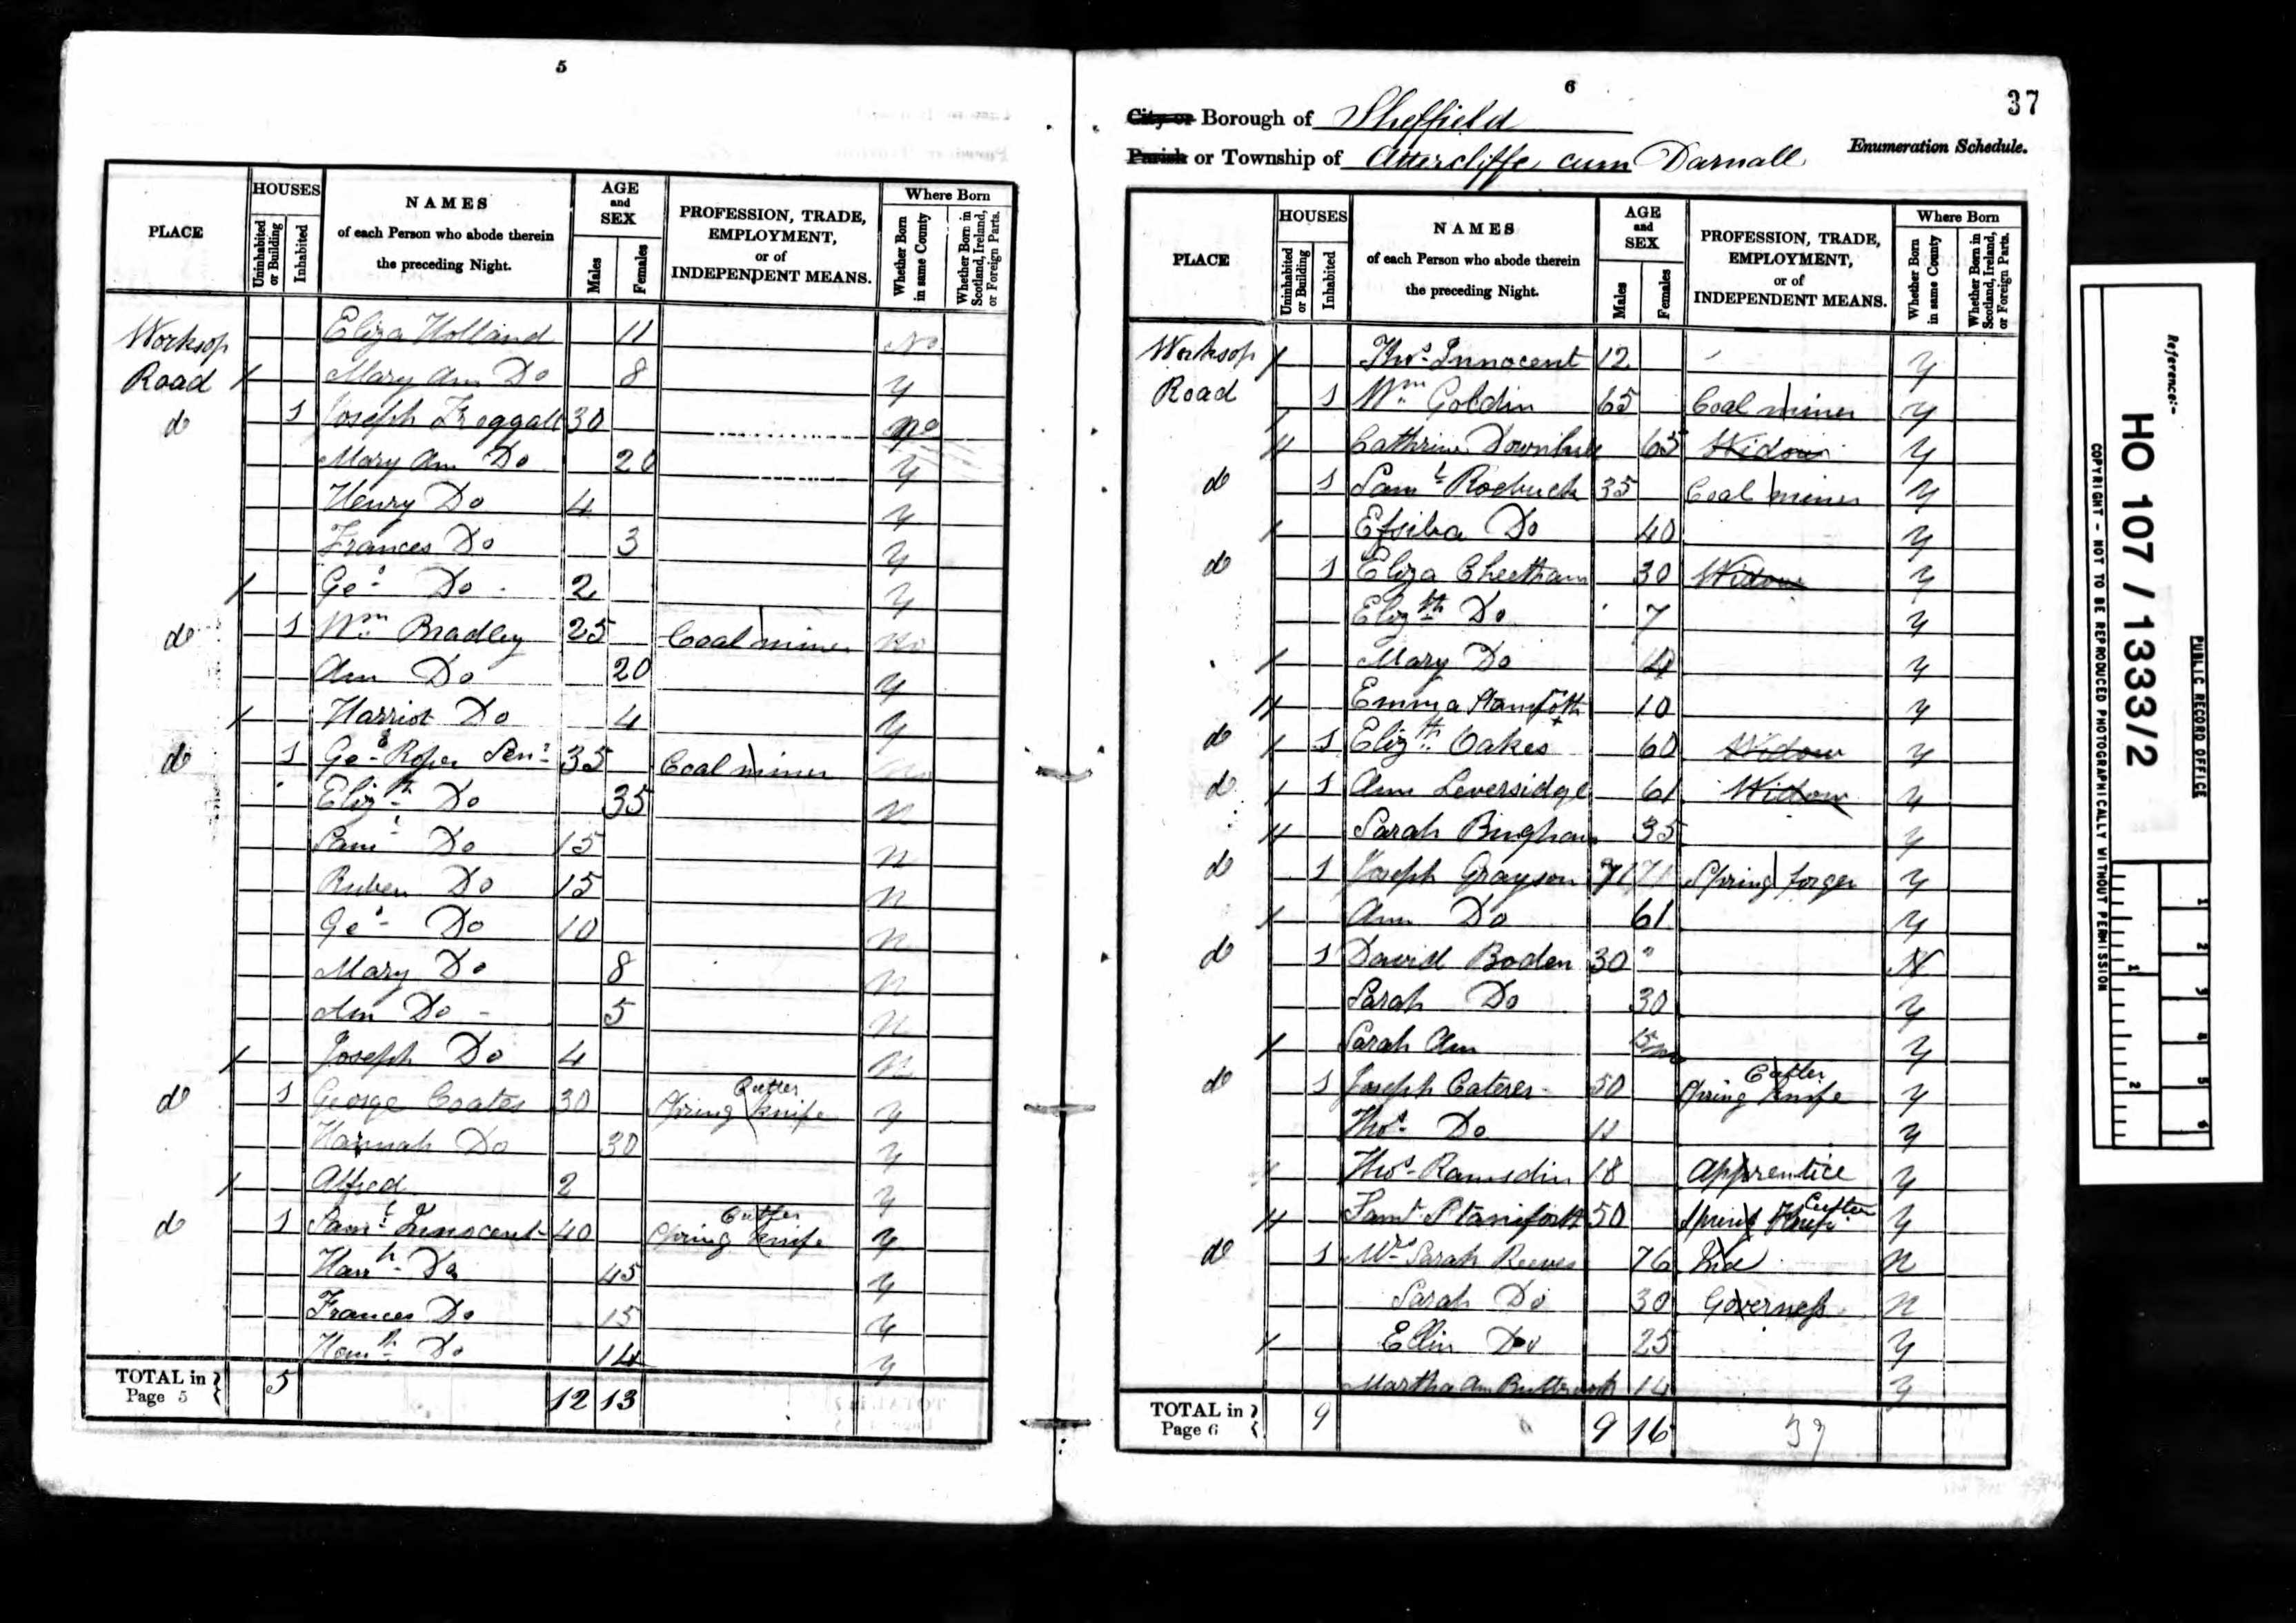 5
PLACE
HOUSES
Uninhabited or Building
Inhabited
NAMES
of each Person who abode therein
the preceding Night.
AGE and SEX
Males
Females
PROFESSION, TRADE, EMPLOYMENT, or of INDEPENDENT MEANS.
Where Born
Whether Born in same County
Whether Born in Scotland, Ireland, or Foreign Parts.
Worksop Eliza Holland 11 No
Road Mary Ann Do 8 y
do 1 Joseph Froggatt 30 No
Mary Ann Do 20 y
Henry Do 4 y
Frances Do 3 y
Geo. Do 2 y
do 1 Wm Bradley 25 Coal miner No
Ann Do 20 y
Harriot Do 4 y
do 1 Geo. Roper Sen. 35 Coal miner
Elizth Do 35 n
Saml Do 15 n
Ruben Do 15 n
Geo. Do 10 n
Mary Do 8 n
Ann Do 5 n
Joseph Do 4 n
do 1 George Coates 30 Spring knife Cutler y
Hannah Do 30 y
Alfred 2 y
do 1 Saml Innocent 40 Spring knife Cutler y
Hanh Do 45 y
Frances Do 15 y
Do 14 y
TOTAL in Page 5 5 12 13
6
37
City or Borough of Sheffield
Parish or Township of Attercliffe cum Darnall
Enumeration Schedule.
PLACE
HOUSES
Uninhabited or Building
Inhabited
NAMES
of each Person who abode therein
the preceding Night.
AGE and SEX
Males
Females
PROFESSION, TRADE, EMPLOYMENT, or of INDEPENDENT MEANS.
Where Born
Whether Born in same County
Whether Born in Scotland, Ireland, or Foreign Parts.
Worksop Thos. Innocent 12 y
Road 1 Wm Goldin 65 Coal miner y
Cathrine 65 Widow y
do 1 Saml Roebuck 35 Coal miner y
Do 40 y
do 1 Eliza Cheetham 30 Widow y
Elizth Do 7 y
Mary Do 4 y
Emma Staniforth 10 y
do 1 Elizth Oakes 60 Widow y
do 1 Ann Leversidge 61 Widow y
Sarah Bingham 35 y
do 1 Joseph Grayson 71 71 Spring forger y
Ann Do 61 y
do 1 David Boden 30 N
Sarah Do 30 y
Sarah Ann 5m y
do 1 Joseph Caterer 50 Spring knife Cutler y
Thos. Do 11 y
Thos. Ramsdin 18 Apprentice y
Saml Staniforth 50 Spring Knife Cutler y
do 1 Mrs Sarah Reeves 76 Ind n
Sarah Do 30 Governess n
Ellin Do 25 y
Martha Ann 14 y
TOTAL in Page 6 9 9 16
37
Reference:-
HO 107 / 1333/2
PUBLIC RECORD OFFICE
COPYRIGHT - NOT TO BE REPRODUCED PHOTOGRAPHICALLY WITHOUT PERMISSION
1 2 3 4 5 6
1 2